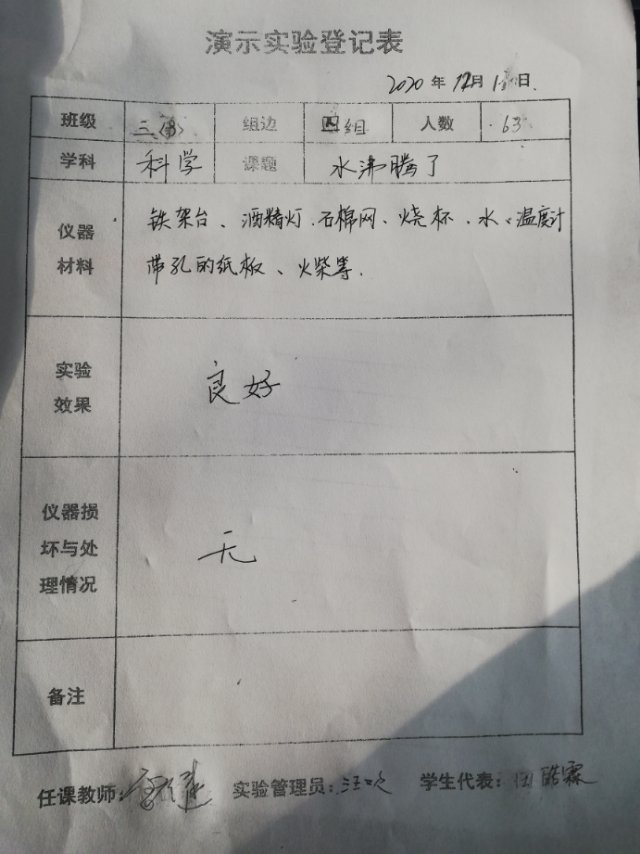 演示实验登记表
2020年12月1日
班级 三 组边 四组 人数 63
学科 科学 课题 水沸腾了
仪器材料 铁架台、酒精灯.石棉网、烧杯、水、温度计
带孔的纸板、火柴等.
实验效果 良好
仪器损坏与处理情况 无
备注
任课教师: 实验管理员:汪 学生代表: 皓霖